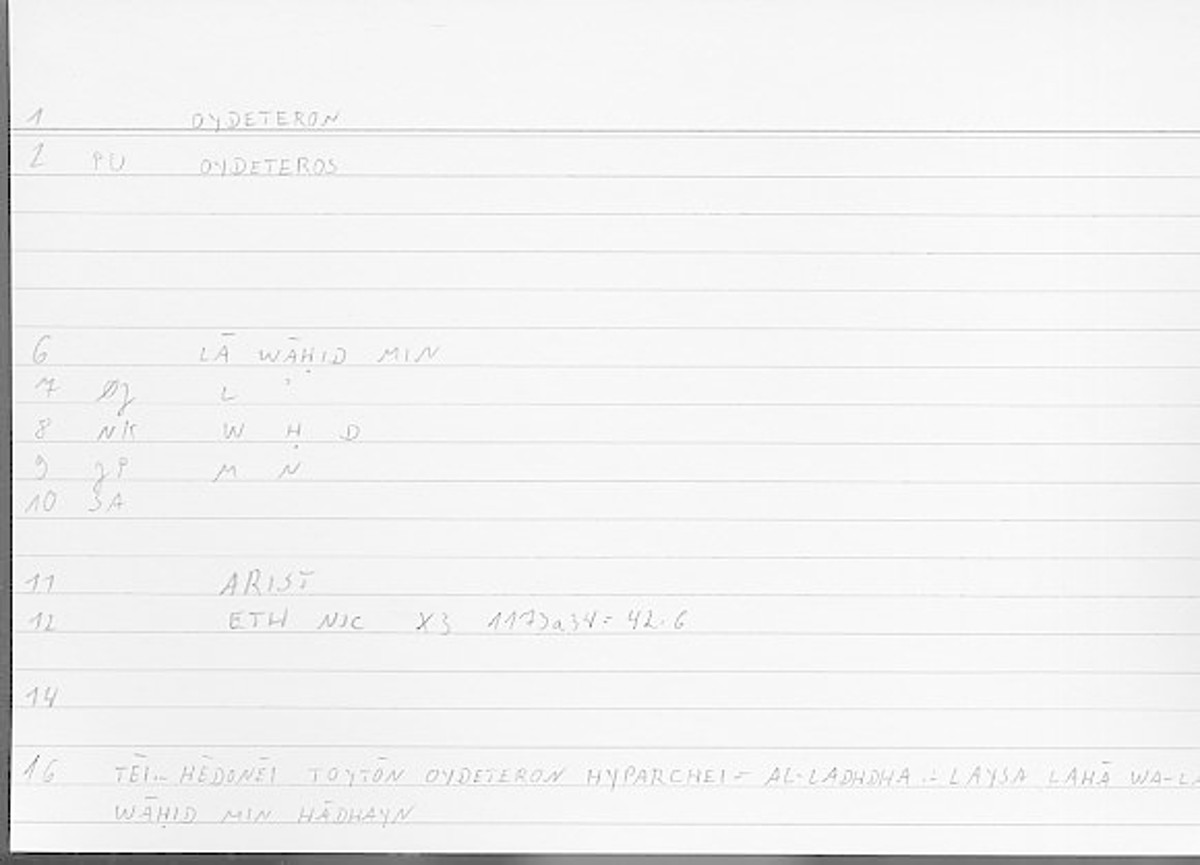 1 OYDETERON
2 PU OYDETEROS
6 LĀ WĀḤID MIN
7 L ʾ
8 NK W Ḥ D
9 gP M N
10 SA
11 ARIST
12 ETH NIC X3 1173a34 = 42.6
14
16 TĒI.. HĒDONĒI TOYTŌN OYDETERON HYPARCHEI = AL-LADHDHA .. LAYSA LAHĀ WA-LĀ
WĀḤID MIN HĀDHAYN